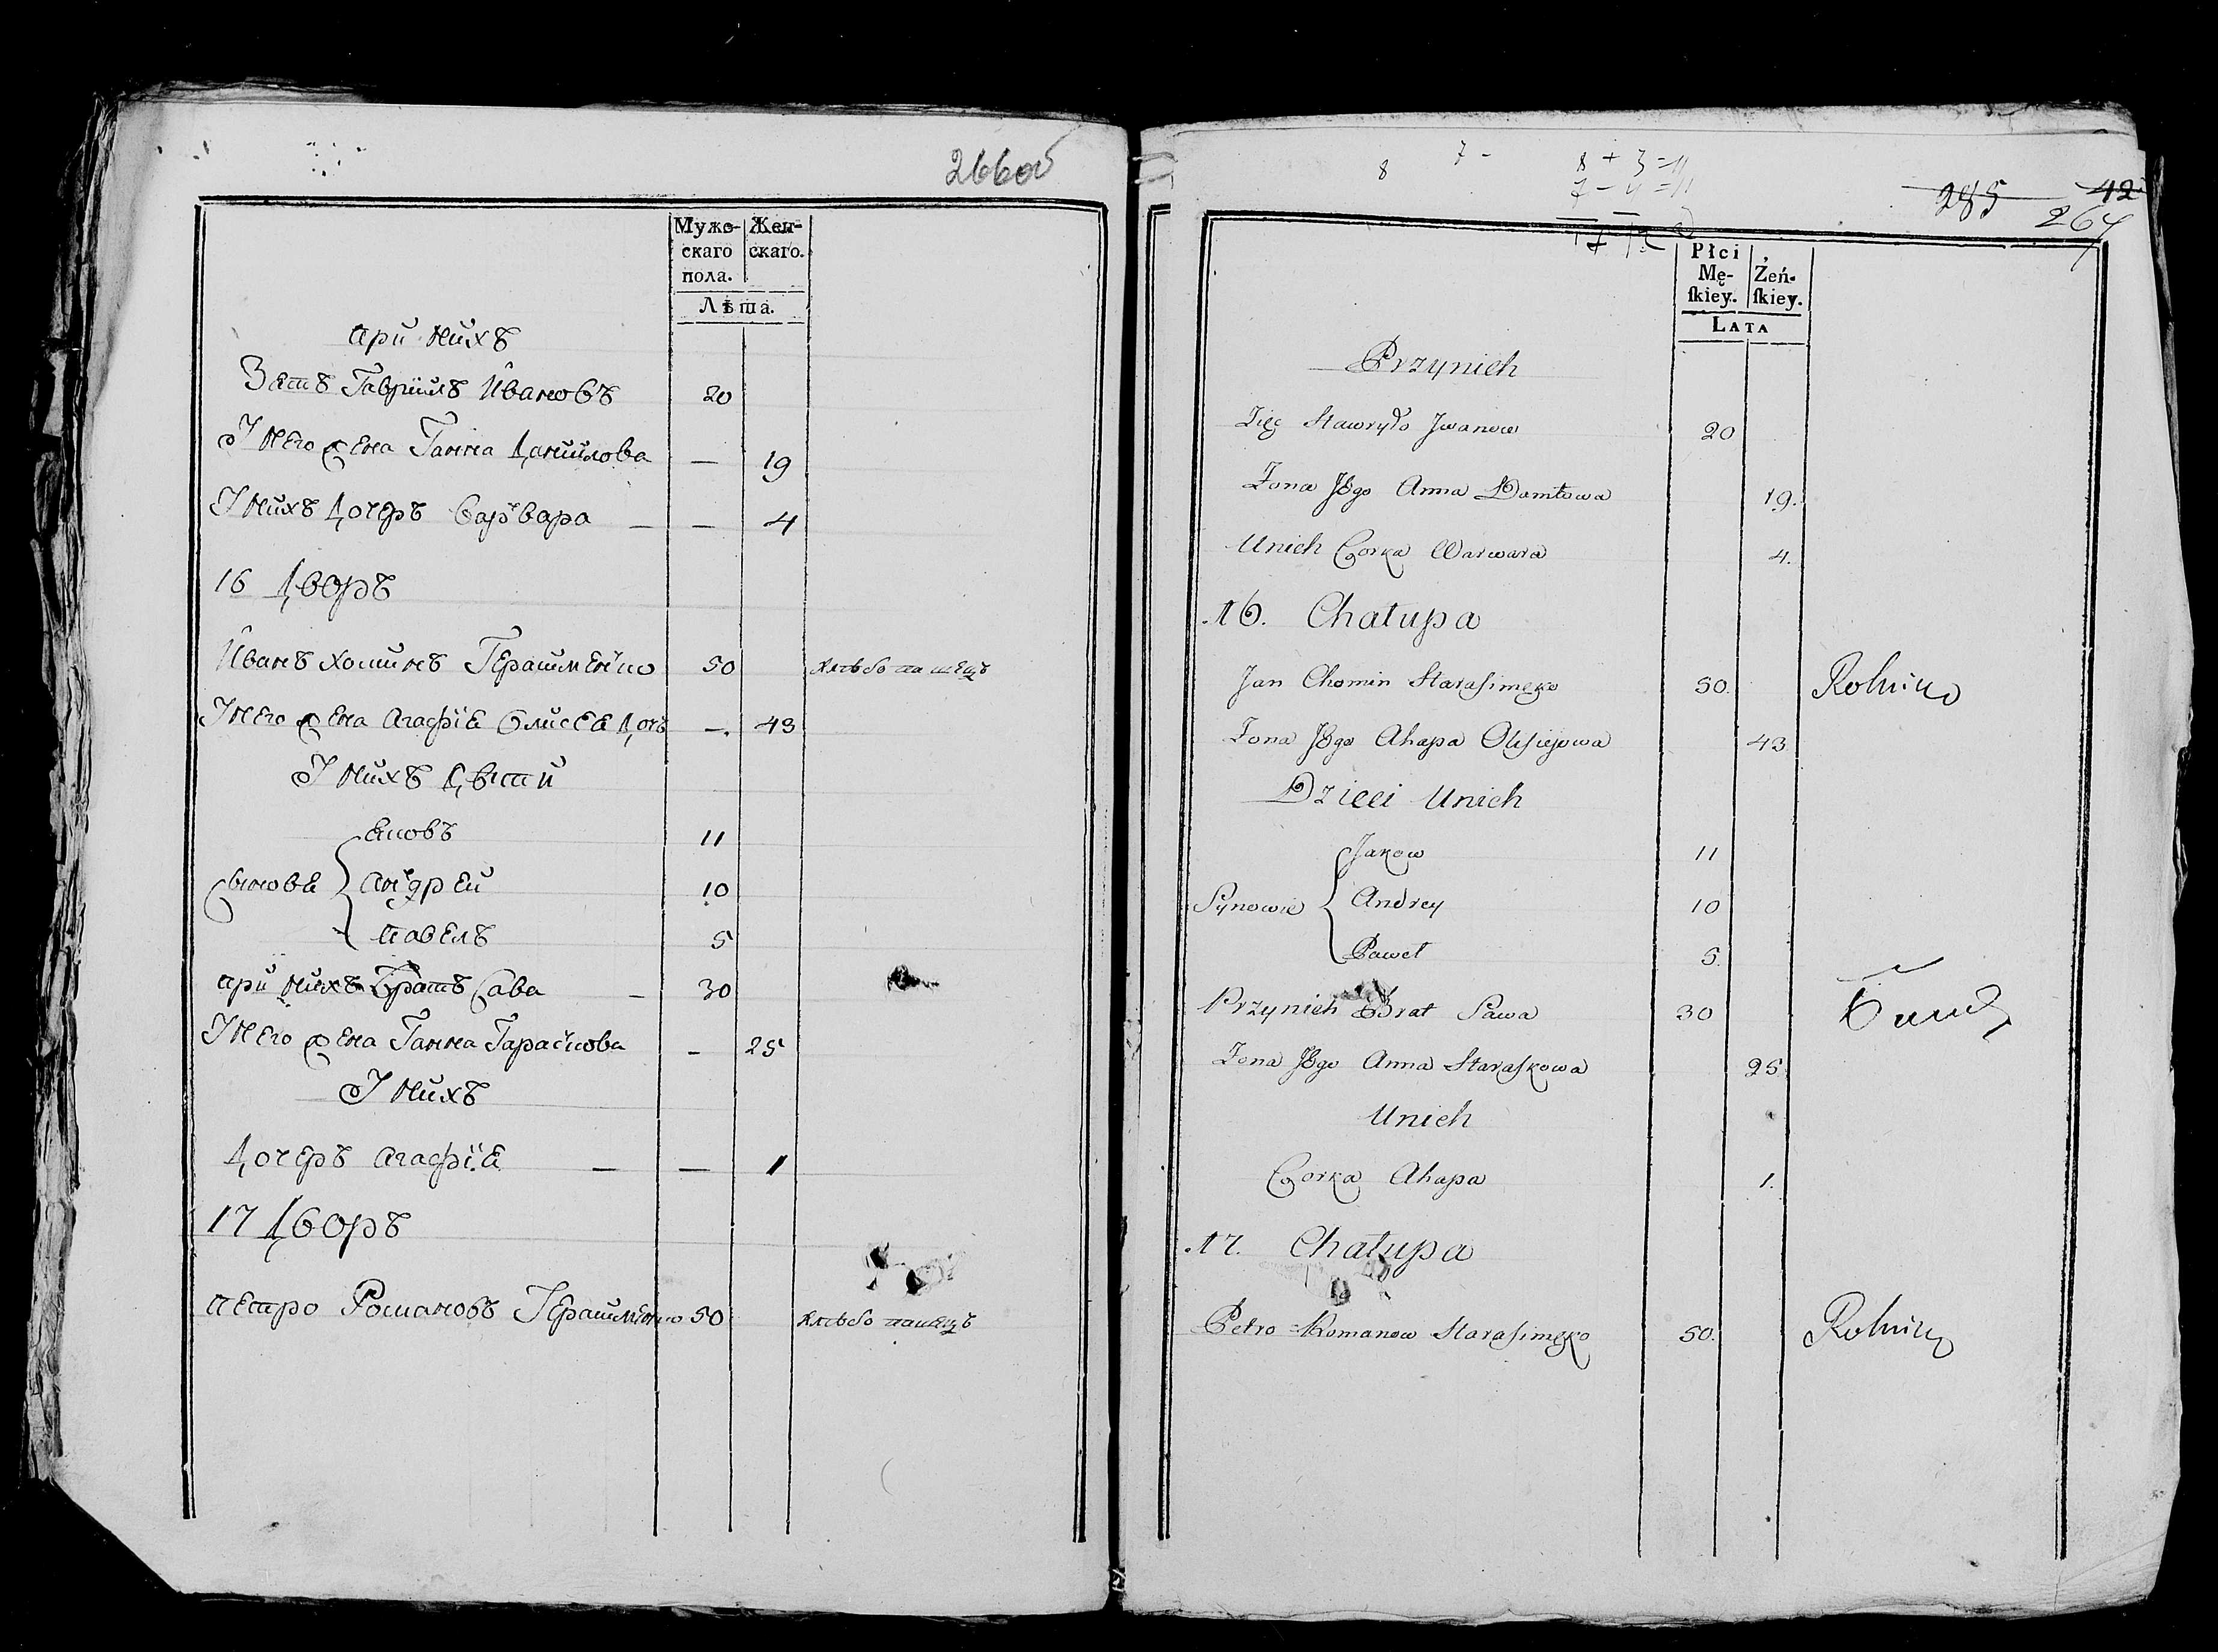 266об
Мужескаго пола.
Женскаго.
Лѣта.
при нихъ
Зять Гавриилъ Ивановъ 20
У него жена Ганна Даниилова — 19
У нихъ дочеръ Варъвара — — 4
16 Дворъ
Иванъ Хоминъ Герасименъко 50 хлѣбопашецъ
У него жена Агафия Елисея дочь — 43
У нихъ дѣти
Яковъ 11
Сынове Анъдрей 10
Павелъ 5
При нихъ братъ Сава — 30
У него жена Ганна Тарасъкова — 25
У нихъ
Дочеръ Агафия — — 1
17 Дворъ
Петро Романовъ Герасименко 50 хлѣбопашецъ
8 7 - 8 + 3 = 11
7 - 4 = 11
285 42
267
Płci Męſkiey.
Żeńſkiey.
LATA
Przynich
Zięc Hawryło Jwanow 20
Zona Jego Anna Daniłowa 19.
Unich Corka Warwara 4.
16. Chałupa
Jan Chomin Harasimęko 50. Rolnik
Zona Jego Ahapa Olisiejowa 43.
Dzieci Unich
Jakow 11
Synowie Andrey 10
Paweł 5.
Przynich Brat Sawa 30
Zona Jego Anna Haraskowa 25.
Unich
Corka Ahapa 1.
17. Chałupa
Petro Romanow Harasimęko 50. Rolnik